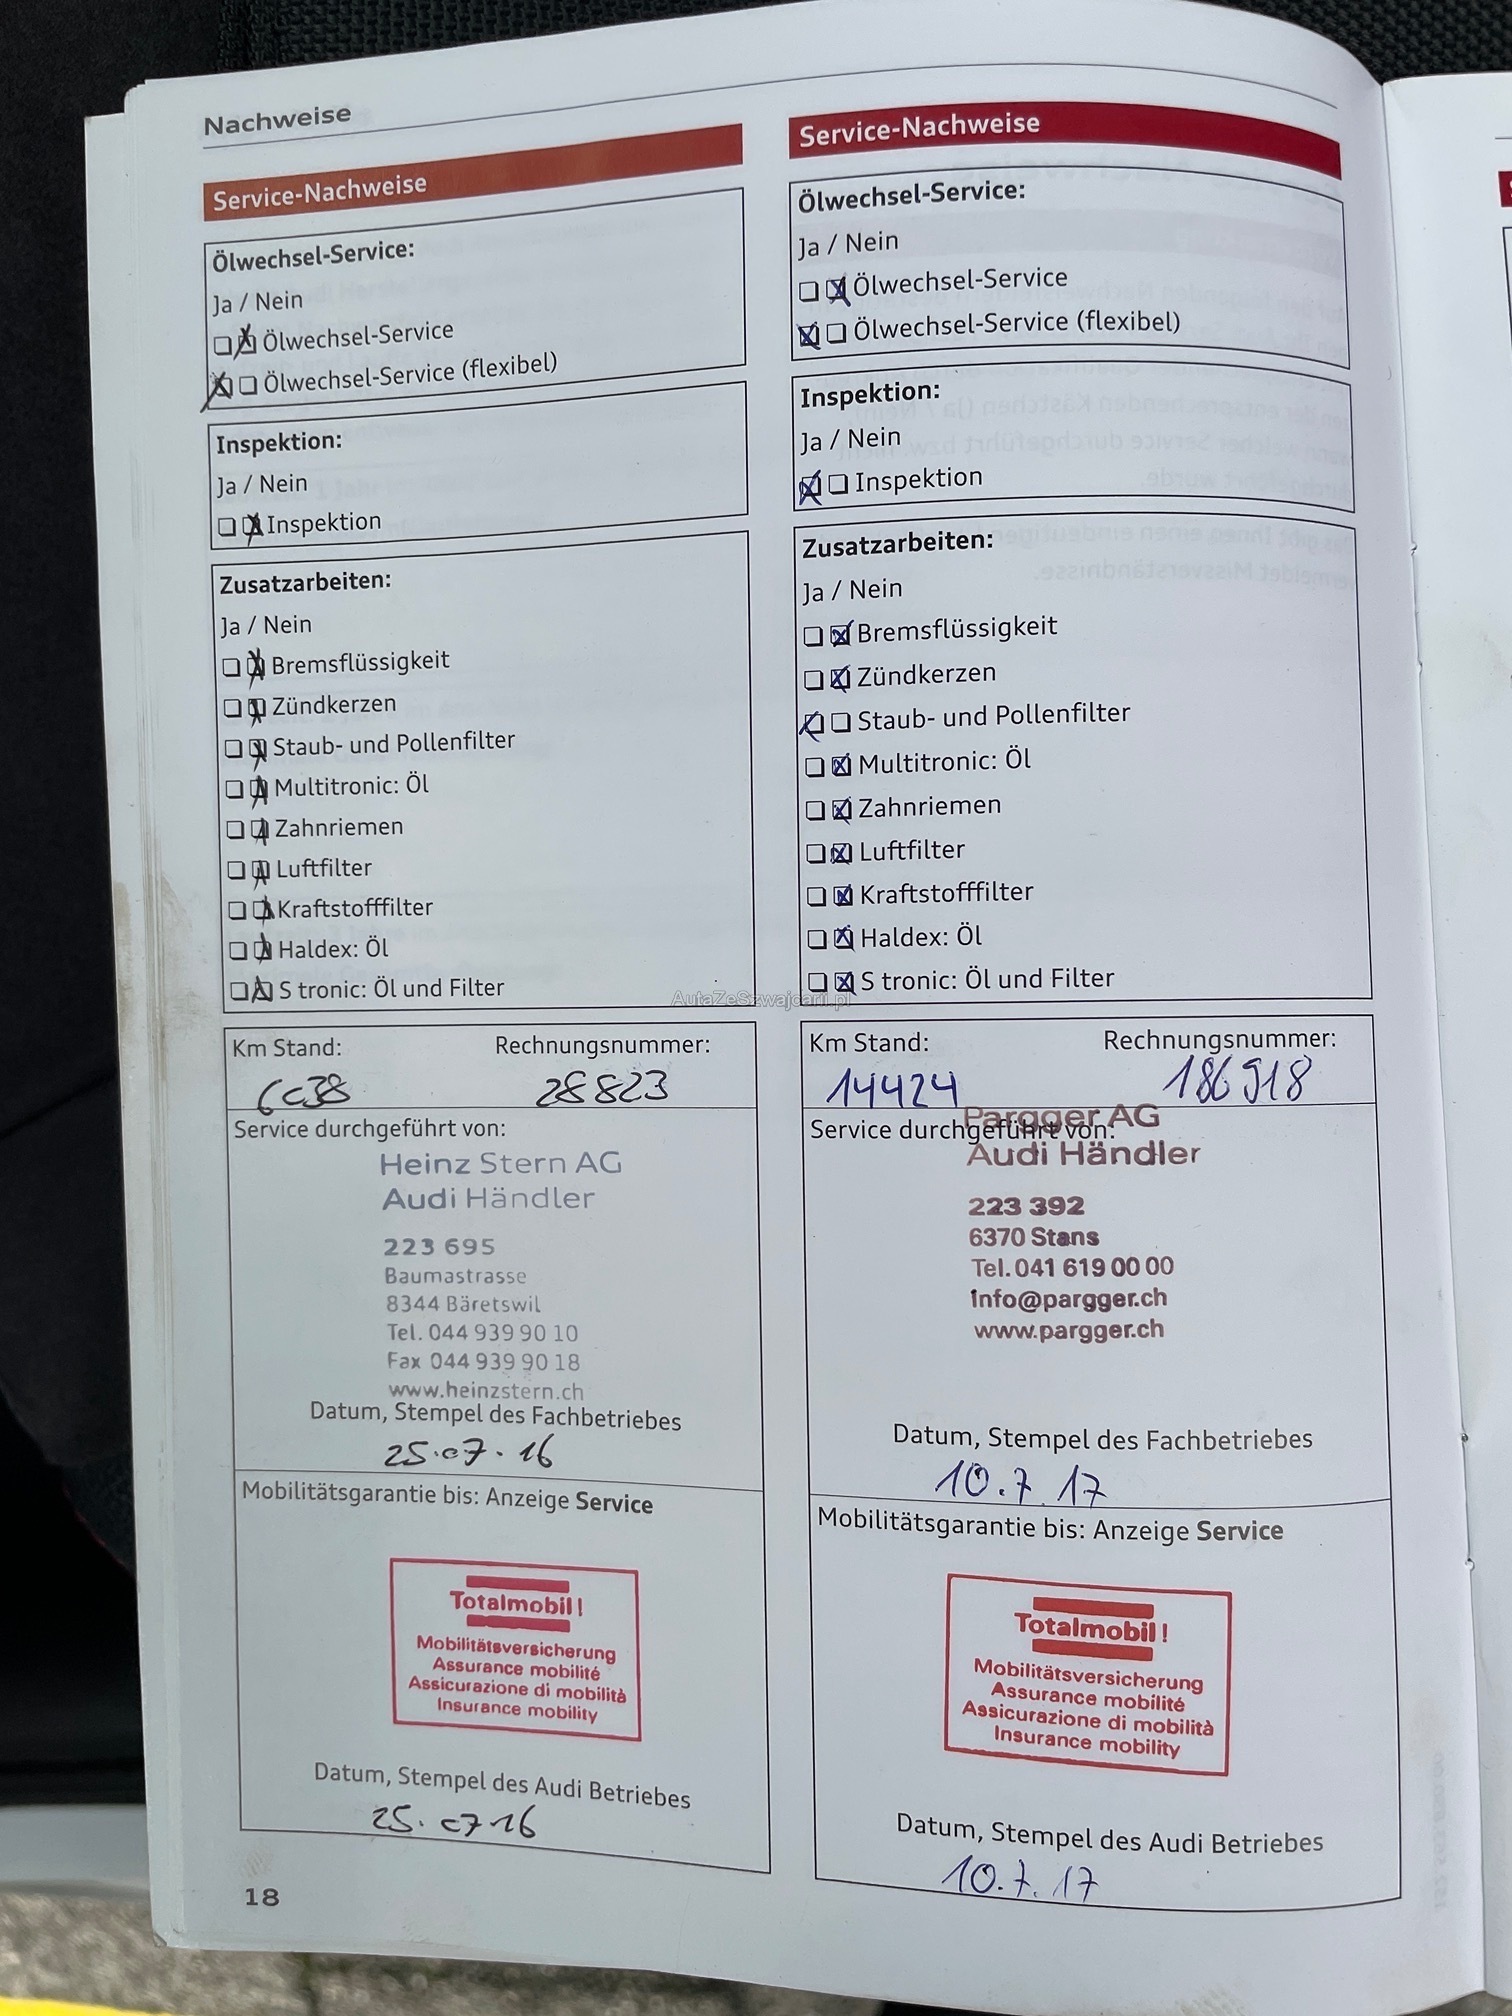 Nachweise
Service-Nachweise
Ölwechsel-Service:
Ja / Nein
Ölwechsel-Service
Ölwechsel-Service (flexibel)
Inspektion:
Ja / Nein
Inspektion
Zusatzarbeiten:
Ja / Nein
Bremsflüssigkeit
Zündkerzen
Staub- und Pollenfilter
Multitronic: Öl
Zahnriemen
Luftfilter
Kraftstofffilter
Haldex: Öl
S tronic: Öl und Filter
Km Stand: Rechnungsnummer:
6038 28823
Service durchgeführt von:
Heinz Stern AG
Audi Händler
223 695
Baumastrasse
8344 Bäretswil
Tel. 044 939 90 10
Fax 044 939 90 18
www.heinzstern.ch
Datum, Stempel des Fachbetriebes
25.07.16
Mobilitätsgarantie bis: Anzeige Service
Totalmobil!
Mobilitätsversicherung
Assurance mobilité
Assicurazione di mobilità
Insurance mobility
Datum, Stempel des Audi Betriebes
25.07.16
18
Service-Nachweise
Ölwechsel-Service:
Ja / Nein
Ölwechsel-Service
Ölwechsel-Service (flexibel)
Inspektion:
Ja / Nein
Inspektion
Zusatzarbeiten:
Ja / Nein
Bremsflüssigkeit
Zündkerzen
Staub- und Pollenfilter
Multitronic: Öl
Zahnriemen
Luftfilter
Kraftstofffilter
Haldex: Öl
S tronic: Öl und Filter
Km Stand: Rechnungsnummer:
14424 186918
Service durchgeführt von:
Pargger AG
Audi Händler
223 392
6370 Stans
Tel. 041 619 00 00
info@pargger.ch
www.pargger.ch
Datum, Stempel des Fachbetriebes
10.7.17
Mobilitätsgarantie bis: Anzeige Service
Totalmobil!
Mobilitätsversicherung
Assurance mobilité
Assicurazione di mobilità
Insurance mobility
Datum, Stempel des Audi Betriebes
10.7.17
AutaZeSzwajcarii.pl